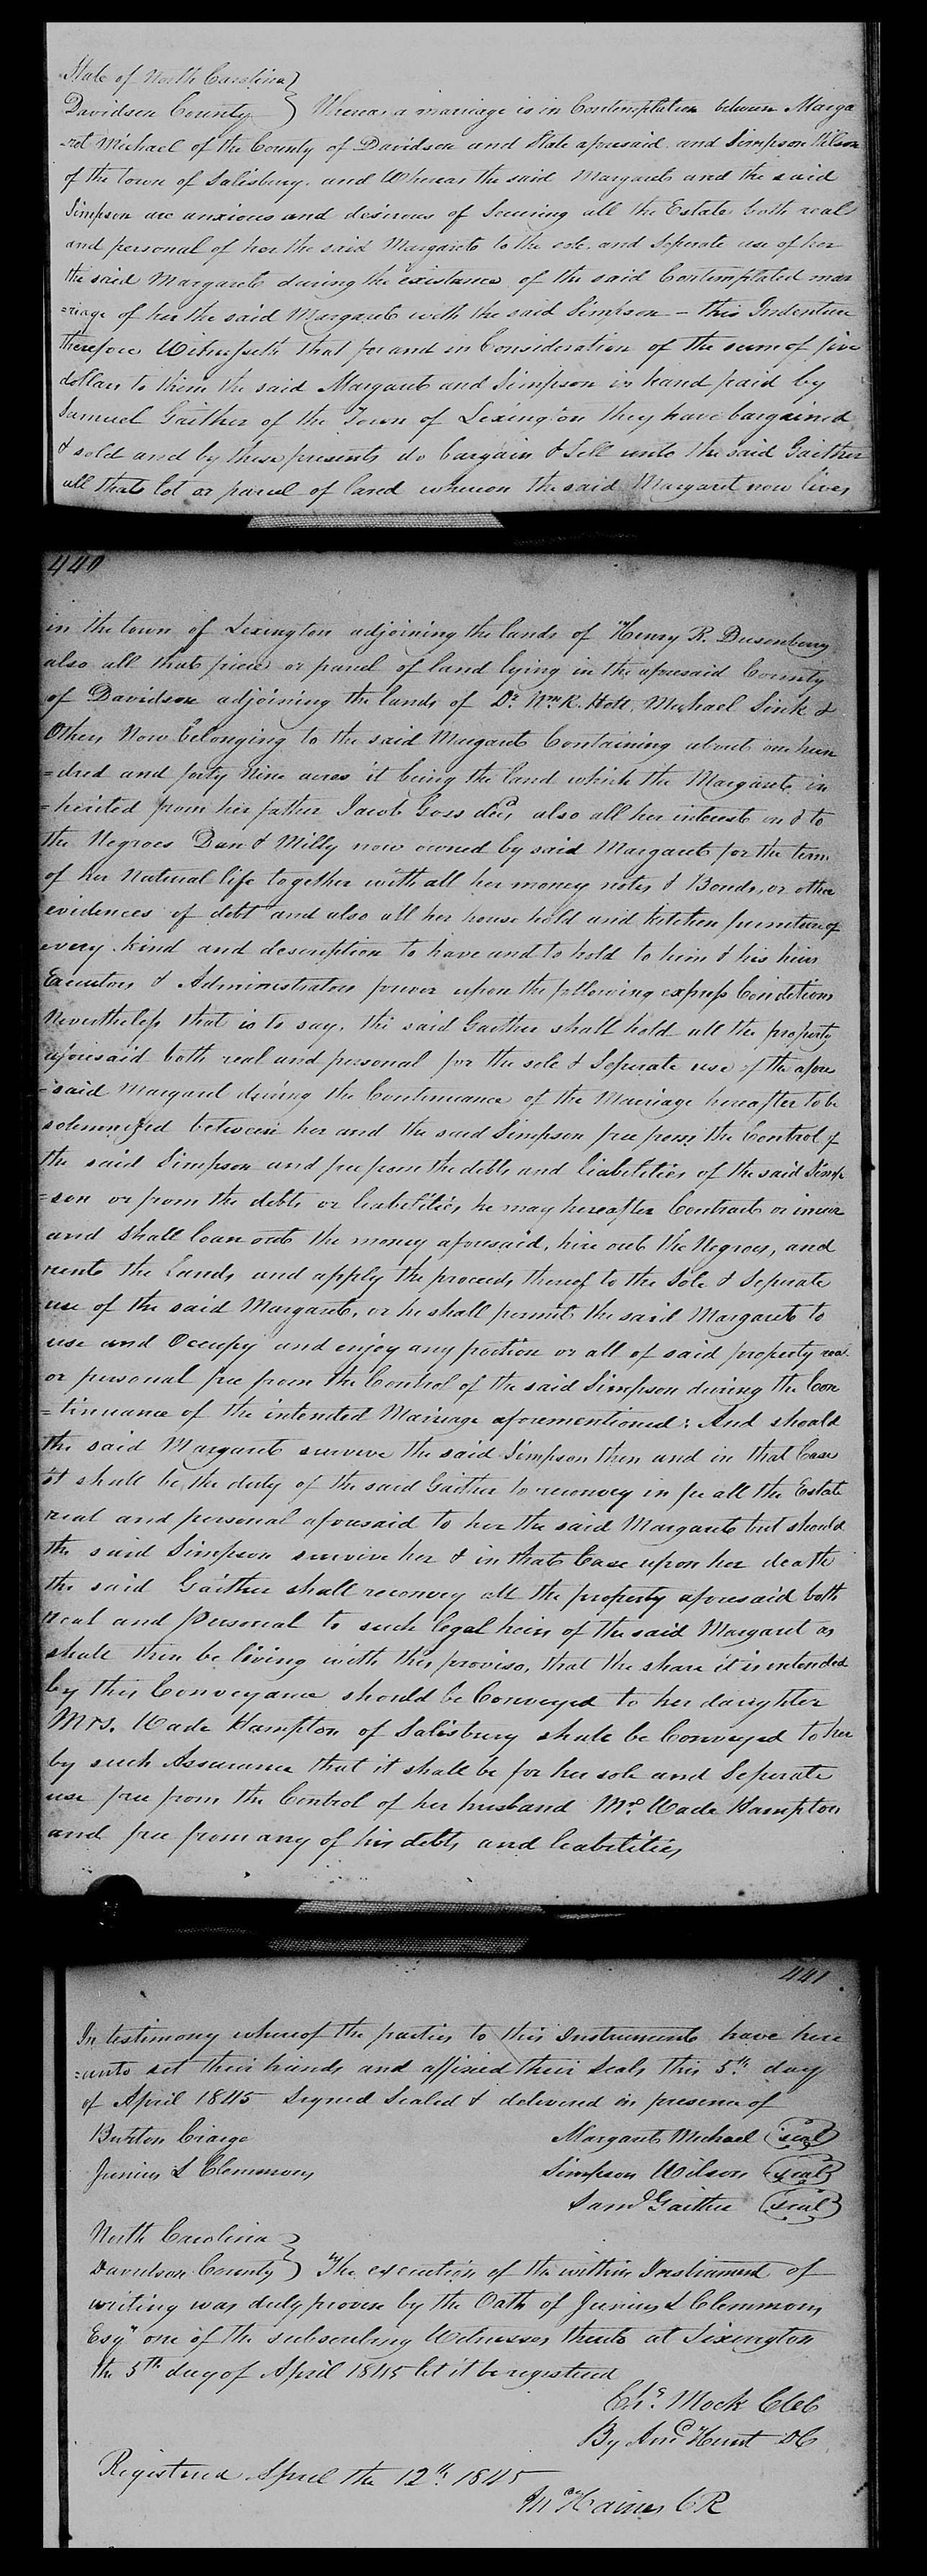 State of North Carolina }
Davidson County } Whereas a marriage is in Contemplation between Marga
=ret Michael of the County of Davidson and State aforesaid and Simpson Wilson
of the town of Salisbury. and Whereas the said Margaret and the said
Simpson are anxious and desirous of Securing all the Estate both real
and personal of her the said Margaret to the sole, and Seperate use of her
the said Margaret during the existance of the said Contemplated mar
=riage of her the said Margaret with the said Simpson - this Indenture
therefore Witnesseth that for and in Consideration of the sum of five
dollars to them the said Margaret and Simpson in hand paid by
Samuel Gaither of the Town of Lexington they have bargained
& sold and by these presents do bargain & Sell unto the said Gaither
all that lot or parcel of land whereon the said Margaret now lives
440
in the town of Lexington adjoining the lands of Henry R. Dusenbery
also all that piece or parcel of land lying in the aforesaid County
of Davidson adjoining the lands of Dr. Wm. R. Holt, Michael Sink &
Others Now belonging to the said Margaret Containing about one hun
=dred and forty Nine acres it being the land which the Margaret in
=herited from her father Jacob Goss decd also all her interest in & to
the Negroes Dan & Milly now owned by said Margaret for the term
of her Natural life together with all her money notes & Bonds, or other
evidences of debt and also all her house hold and kitchen furniture of
every kind and description to have and to hold to him & his heirs
Executors & Administrators forever upon the following express Conditions
Nevertheless that is to say, the said Gaither shall hold all the property
aforesaid both real and personal for the sole & Seperate use of the afore
=said Margaret during the Continuance of the Marriage hereafter to be
solemnized between her and the said Simpson free from the Control of
the said Simpson and free from the debts and liabilities of the said Simp
=son or from the debts or liabilities he may hereafter Contract or incur
and shall loan out the money aforesaid, hire out the Negroes, and
rents the Lands and apply the proceeds thereof to the Sole & Seperate
use of the said Margaret, or he shall permit the said Margaret to
use and Occupy and enjoy any portion or all of said property real
or personal free from the Control of the said Simpson during the Con
=tinuance of the intended Marriage aforementioned; And should
the said Margaret survive the said Simpson then and in that Case
it shall be the duty of the said Gaither to reconvey in fee all the Estate
real and personal aforesaid to her the said Margaret but should
the said Simpson survive her & in that Case upon her death
the said Gaither shall reconvey all the property aforesaid both
real and personal to such legal heirs of the said Margaret as
shall then be living with this proviso, that the share it is intended
by this Conveyance should be Conveyed to her daughter
Mrs. Wade Hampton of Salisbury shall be Conveyed to her
by such Assurance that it shall be for her sole and Seperate
use free from the Control of her husband Mr. Wade Hampton
and free from any of his debts and liabilities
441
In testimony whereof the parties to this Instrument have here
=unto set their hands and affixed their Seals this 5th day
of April 1845 Signed Sealed & delivered in presence of
Burton Craige Margaret Michael (seal)
Junius L Clemmons Simpson Wilson (seal)
Saml Gaither (seal)
North Carolina }
Davidson County } The execution of the within Instrument of
writing was duly proven by the Oath of Junius L Clemmons
Esqr one of the subscribing Witnesses thereto at Lexington
the 5th day of April 1845 let it be registered
Chs. Mock CCC
By And Hunt DC
Registered April the 12th 1845
M Haines CR